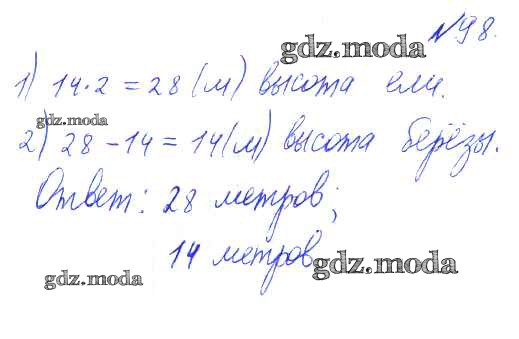 №98.
gdz.moda
1) 14·2=28 (м) высота ели.
gdz.moda
2) 28-14=14(м) высота берёзы.
Ответ: 28 метров;
14 метров
gdz.moda
gdz.moda